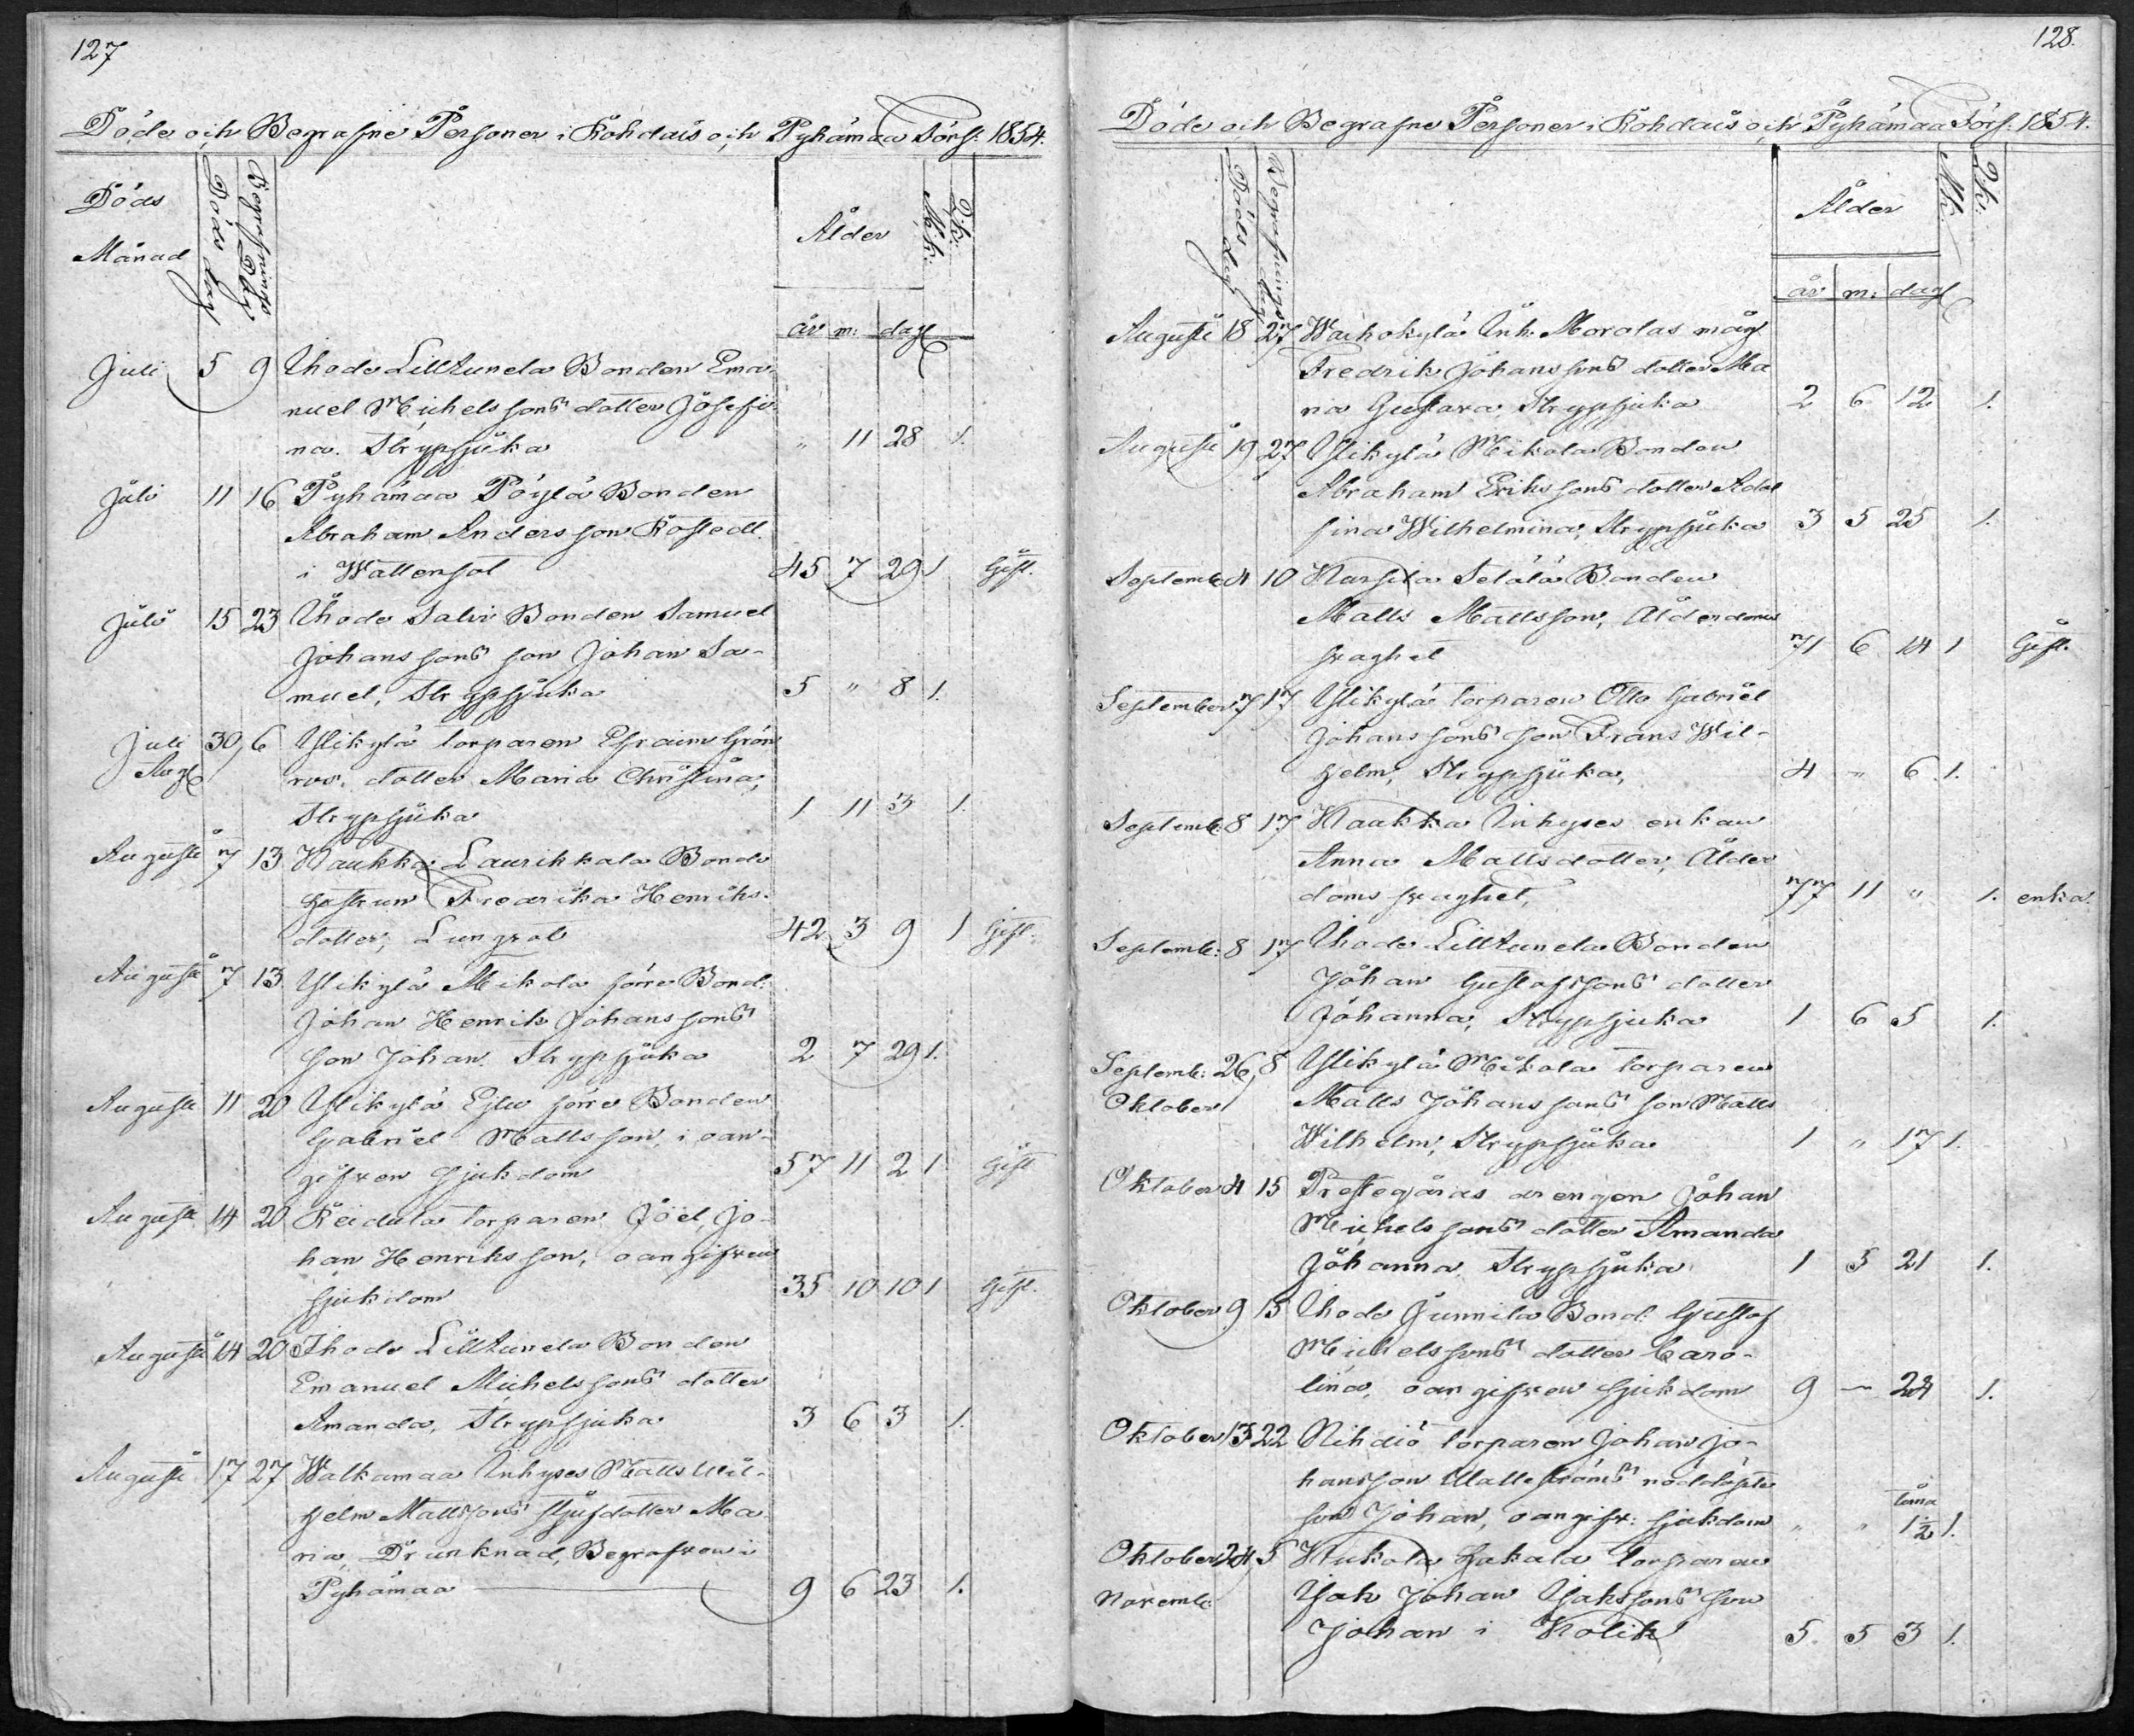 127
Döde och Begrafne Personer i Rohdais och Pyhämaa Förs: 1854.
Döds
Månad
Döds dag
Begrafnings Dag
Ålder
år m: dag
M.k:
Q.k:
Juli 5 9 Ihode Lilltunela Bonden Ema-
nuel Michelssons dotter Josefi-
na. Strypsjuka " 11 28 1.
Juli 11 16 Pyhämaa Pöylä Bonden
Abraham Andersson Rostedt.
i Wattensot 45 7 29 1 Gift.
Juli 15 23 Ihode Salvi Bonden Samuel
Johanssons son Johan Sa-
muel, Strypsjuka 5 " 8 1.
Juli 30 6 Ylikylä torparen Efraim Grön
Aug
roos. dotter Maria Christina,
Strypsjuka 1 11 3 1.
Augusti 7 13 Haukka Laurikkala Bonde
hustrun Fredrika Henriks-
dotter, Lungsot 42 3 9 1 Gift.
Augusti 7 13 Ylikylä Mikola förre Bond:
Johan Henrik Johanssons
son Johan. Strypsjuka 2 7 29 1.
Augusti 11 20 Ylikylä Ejlu förre Bonden
Gabriel Mattsson, i oan-
gifven sjukdom 57 11 2 1 Gift
Augusti 14 20 Reidula torparen Joël Jo-
han Henriksson, oangifven
sjukdom 35 10 10 1 Gift.
Augusti 14 20 Ihode Lilltunela Bonden
Emanuel Michelssons dotter
Amanda, Strypsjuka 3 6 3 1.
Augusti 17 27 Walkamaa Inhyses Matts Wil-
helm Mattssons styfdotter Ma
ria, Drunknad, Begrafven i
Pyhämaa 9 6 23 1.
128.
Döde och Begrafne Personer i Rohdais och Pyhämaa Förs: 1854.
Döds dag
Begrafnings dag
Ålder
år m: dag
Mk:
Qk:
Augusti 18 27 Waihokylä Inh. Morolas måg
Fredrik Johanssons dotter Ma
ria Gustava, Strypsjuka 2 6 12 1.
Augusti 19 27 Ylikylä Mikola Bonden
Abraham Erikssons dotter Adol
fina Wilhelmina, Strypsjuka 3 5 25 1.
Septemb. 4 10 Kursila Setälä Bonden
Matts Mattsson, Ålderdoms
svaghet 71 6 14 1 Gift.
September 7 17 Ylikylä torparen Otto Gabriel
Johanssons son Frans Wil-
helm, Strypsjuka, 4 " 6 1.
Septemb: 8 17 Haukka Inhyses enkan
Anna Mattsdotter, Ålder
doms svaghet, 77 11 " 1. enka.
Septemb: 8 17 Ihode Lilltunela Bonden
Johan Gustafssons dotter
Johanna, Strypsjuka 1 6 5 1.
Septemb: 26 8 Ylikylä Mikola torparen
Oktober Matts Johanssons son Matts
Wilhelm, Strypsjuka 1 " 17 1.
Oktober 4 15 Prestegårds drengen Johan
Michelssons dotter Amanda
Johanna Strypsjuka 1 5 21 1.
Oktober 9 15 Ihode Junnila Bond: Gustaf
Michelssons dotter Caro-
lina, oangifven sjukdom 9 — 24 1.
Oktober 13 22 Nihdiö torparen Johan Jo-
hansson Wallströms nöddöpte
son Johan, oangifv: sjukdom " " tima 1½ 1.
Oktober 24 5 Kukola Hakala Torparen
Novemb: Isak Johan Isakssons son
Johan i Kolik 5. 5 3 1.